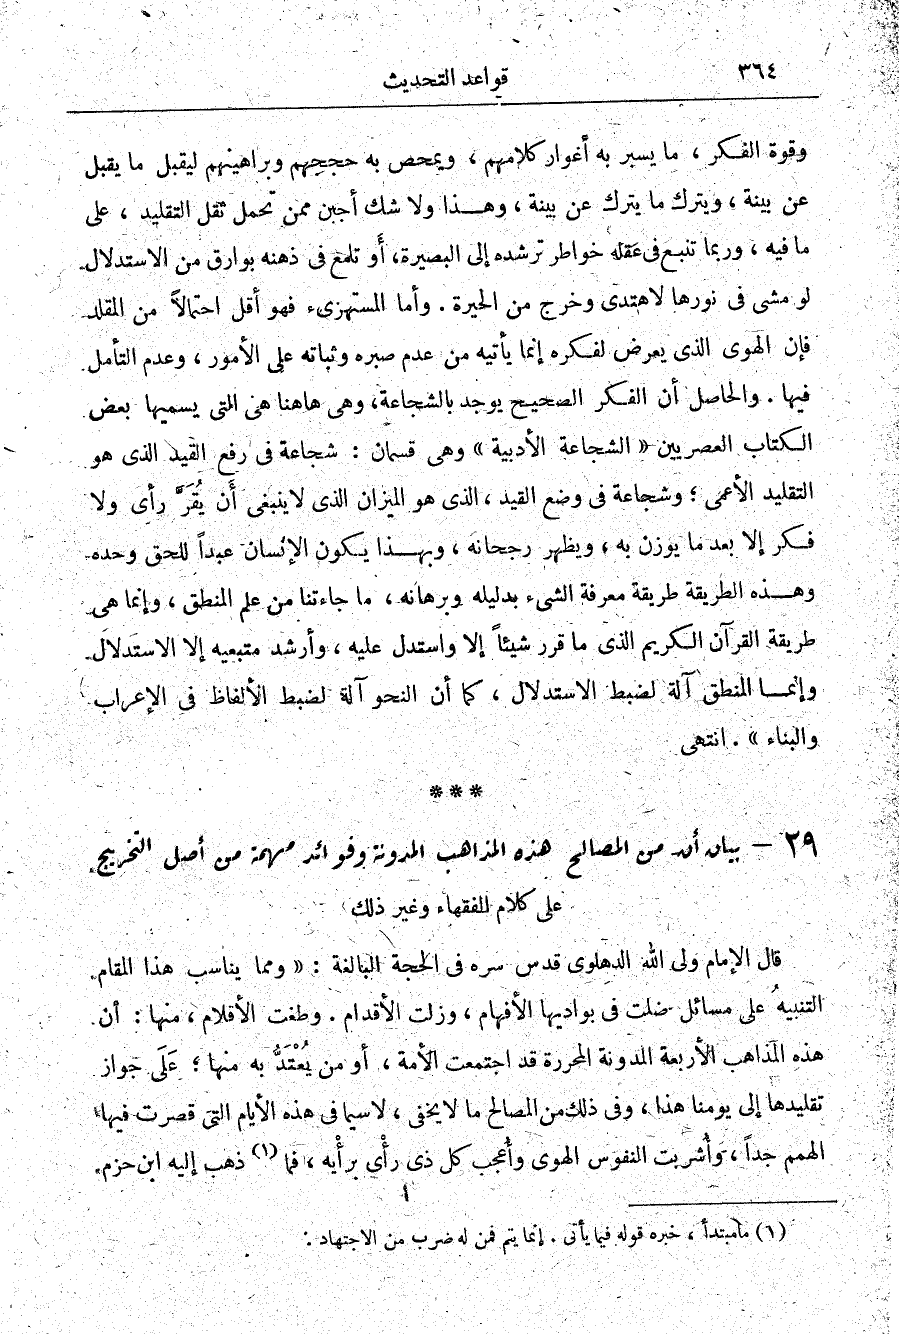 ٣٦٤
قواعد التحديث
وقوة الفكر ، ما يسبر به أغوار كلامهم ، ويمحص به حججهم وبراهينهم ليقبل ما يقبل
عن بينة ، ويترك ما يترك عن بينة ، وهذا ولا شك أجبن ممن تحمل ثقل التقليد ، على
ما فيه ، وربما تنبع فى عقله خواطر ترشده إلى البصيرة، أَو تلمع فى ذهنه بوارق من الاستدلال
لو مشى فى نورها لاهتدى وخرج من الحيرة . وأما المستهزىء فهو أقل احتمالاً من المقلد
فإن الهوى الذى يعرض لفكره إنما يأتيه من عدم صبره وثباته على الأمور ، وعدم التأمل
فيها . والحاصل أن الفكر الصحيح يوجد بالشجاعة، وهى هاهنا هى التى يسميها بعض
الكتاب العصريين « الشجاعة الأدبية » وهى قسمان : شجاعة فى رفع القيد الذى هو
التقليد الأعمى ؛ وشجاعة فى وضع القيد ، الذى هو الميزان الذى لاينبغى أَن يُقَرَّ رأى ولا
فكر إلا بعد ما يوزن به ، ويظهر رجحانه ، وبهذا يكون الإنسان عبداً للحق وحده
وهذه الطريقة طريقة معرفة الشىء بدليله وبرهانه ، ما جاءتنا من علم المنطق ، وإنما هى
طريقة القرآن الكريم الذى ما قرر شيئاً إلا واستدل عليه ، وأرشد متبعيه إلا الاستدلال
وإنما المنطق آلة لضبط الاستدلال ، كما أن النحو آلة لضبط الألفاظ فى الإعراب
والبناء » . انتهى
***
٢٩ – بيان أن من المصالح هذه المذاهب المدونة وفوائد مهمة من أصل التخريج
على كلام الفقهاء وغير ذلك
قال الإمام ولى الله الدهلوى قدس سره فى الحجة البالغة : « ومما يناسب هذا المقام
التنبيهُ على مسائل ضلت فى بواديها الأفهام ، وزلت الأقدام . وطغت الأقلام ، منها : أن
هذه المذاهب الأربعة المدونة المحررة قد اجتمعت الأمة ، أو من يُعْتَدُّ به منها ؛ عَلَى جواز
تقليدها إلى يومنا هذا ، وفى ذلك من المصالح ما لا يخفى ، لاسيما فى هذه الأيام التى قصرت فيها
الهمم جداً ، وأُشربت النفوس الهوى وأُعجب كل ذى رأْى برأْيه ، فما (١) ذهب إليه ابن حزم
(١) ما مبتدأ ، خبره قوله فيما يأتى . إنما يتم فمن له ضرب من الاجتهاد .